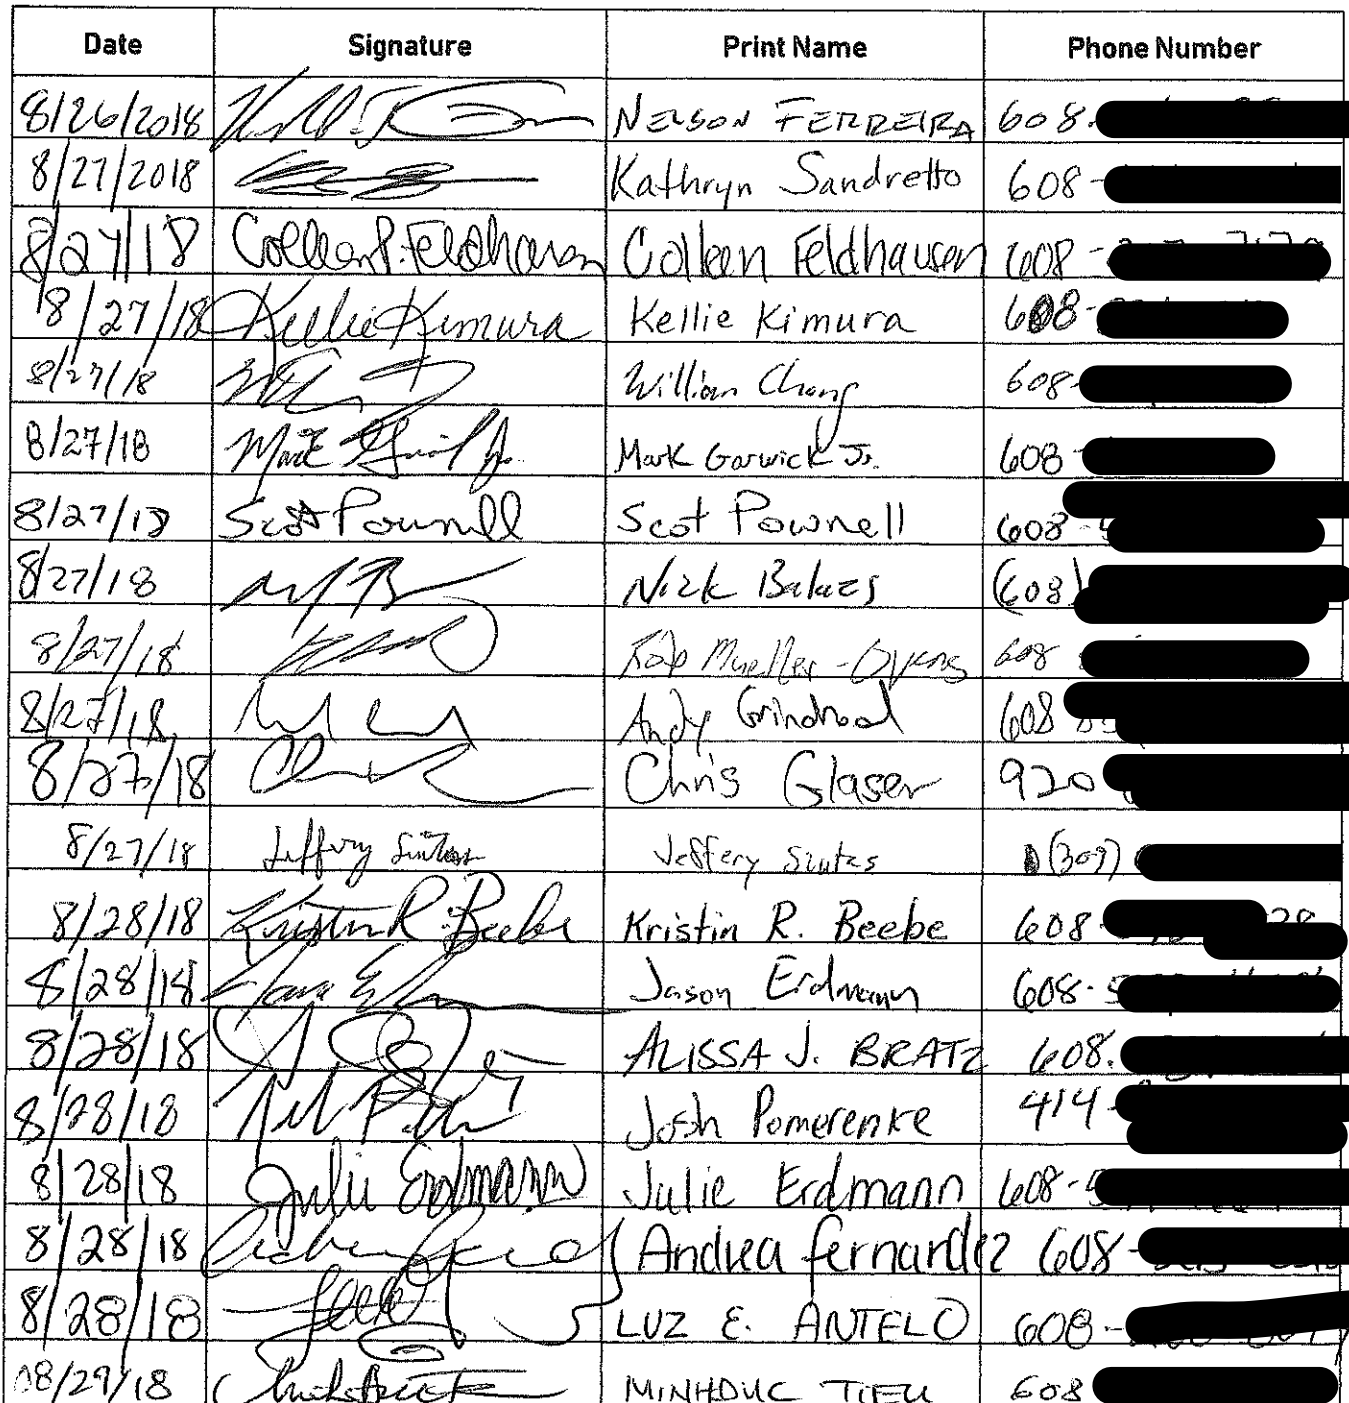 Date Signature Print Name Phone Number
8/26/2018 NELSON FERREIRA 608.
8/27/2018 Kathryn Sandretto 608-
8/27/18 Colleen P. Feldhausen Colleen Feldhausen 608-
8/27/18 Kellie Kimura Kellie Kimura 608-
8/27/18 William Chang 608-
8/27/18 Mark Garwick Jr. 608-
8/27/18 Scot Pownell Scot Pownell 608-5
8/27/18 Nick Balazs (608)
8/27/18 Rob Mueller-Owens 608
8/27/18 Andy Grindrod 608
8/27/18 Chris Glaser 920
8/27/18 Jeffery Jeffery (309)
8/28/18 Kristin R. Beebe Kristin R. Beebe 608-
8/28/18 Jason Erdmann 608-5
8/28/18 ALISSA J. BRATZ 608.
8/28/18 Josh Pomerenke 414-
8/28/18 Julie Erdmann Julie Erdmann 608-5
8/28/18 Andrea fernandez 608-
8/28/18 LUZ E. ANTELO 608-
08/29/18 MINHDUC TIEU 608